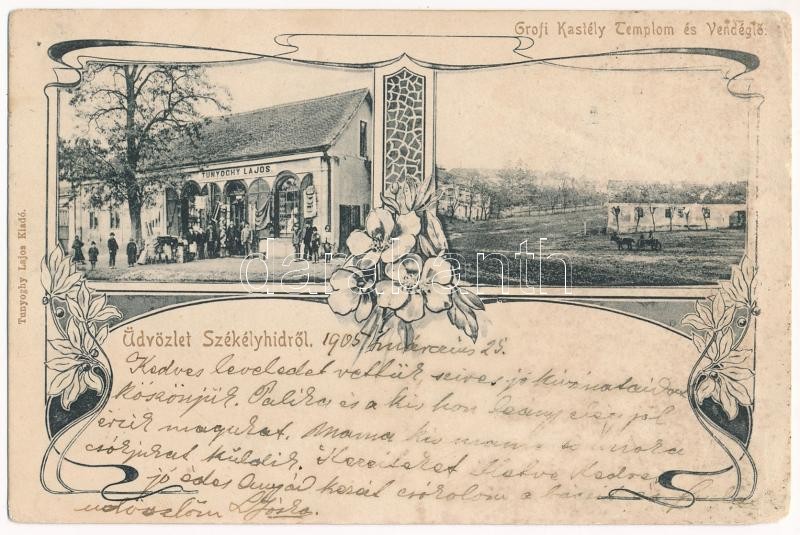 Grofi Kastély Templom és Vendéglő.
TUNYOGHY LAJOS
Tunyoghy Lajos Kiadó.
darabanth
Üdvözlet Székelyhidról. 1905 március 25.
Kedves leveledet vettük, szives jó kivánataidat
köszönjük. Palika és a kis hon leány elég jól
érzik magukat. Mama kis mama
csókjukat küldik. Kezeiteket illetve Kedves
jó édes Anyád kezeit csókolom a
üdvözlöm